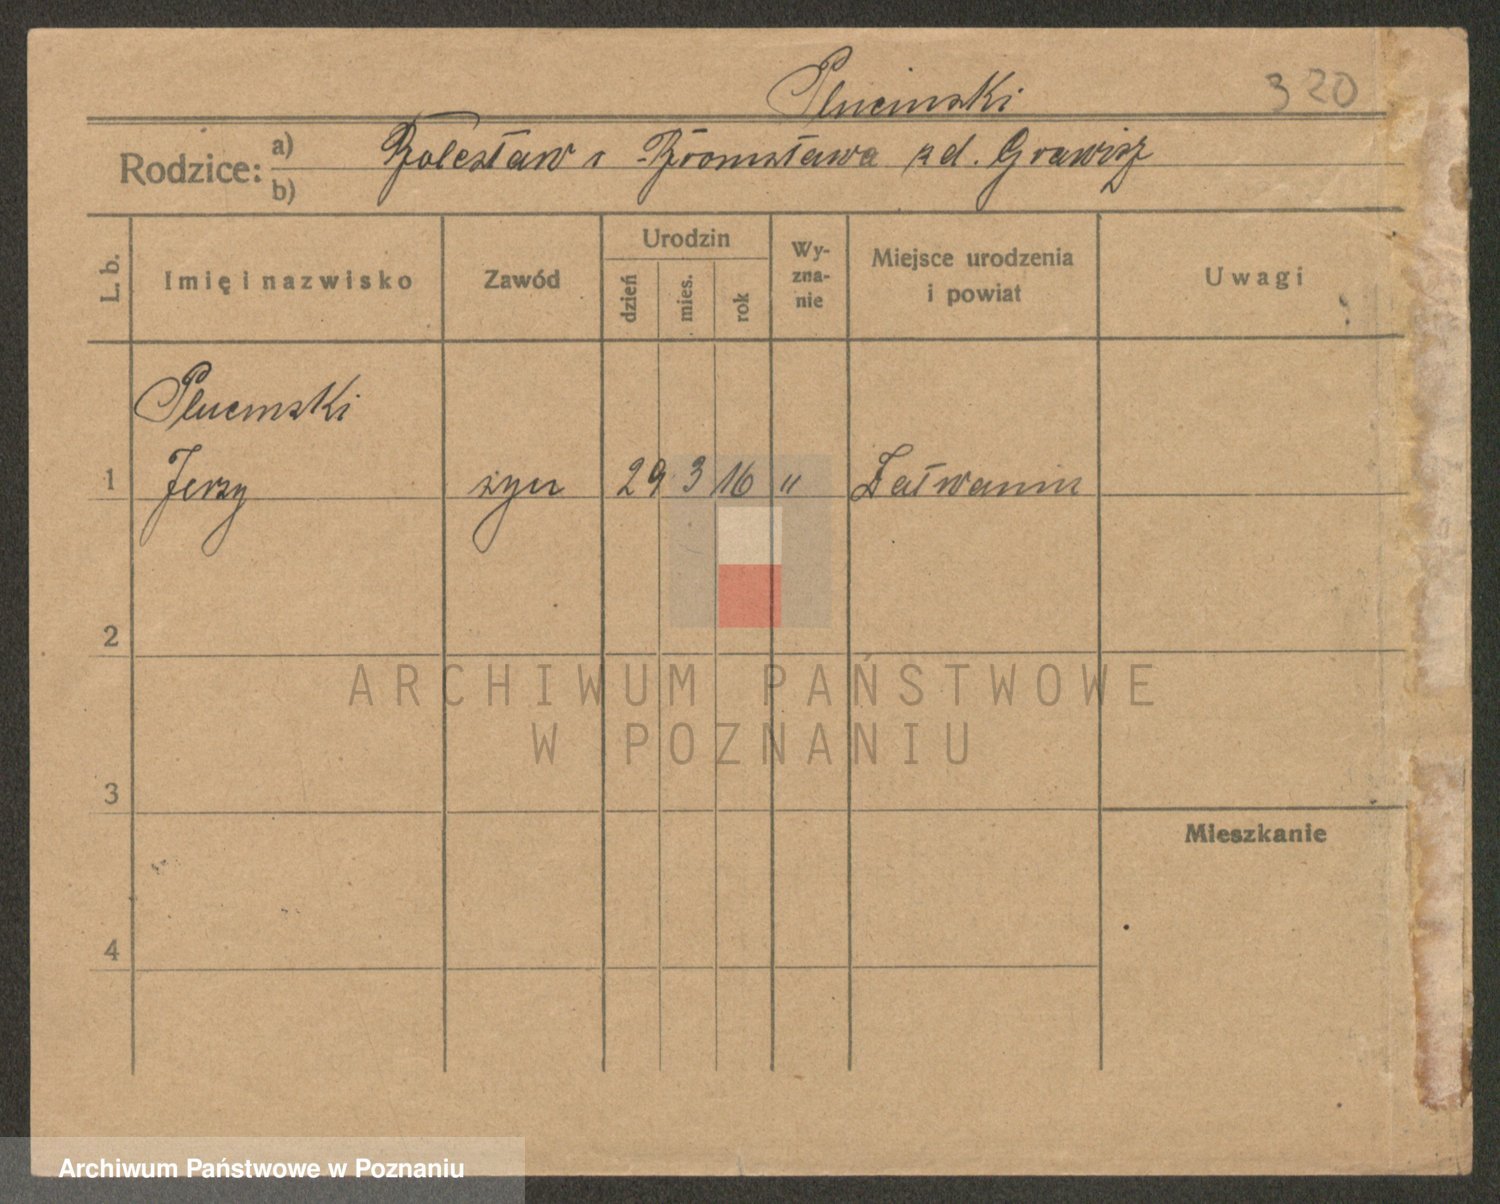 Plucinski 320
Rodzice: a) Bolesław i Bronisława zd. Grawisz
b)
L. b. Imię i nazwisko Zawód Urodzin dzień mies. rok Wy-zna-nie Miejsce urodzenia i powiat Uwagi
Plucinski
1 Jerzy syn 29 3 16 "
2
ARCHIWUM PAŃSTWOWE
W POZNANIU
3
Mieszkanie
4
Archiwum Państwowe w Poznaniu